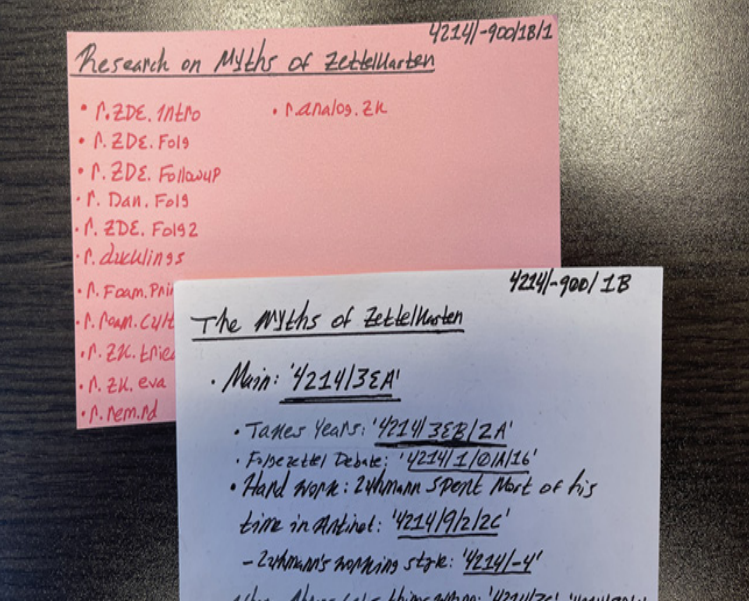 4214/-900/1B/1
Research on Myths of Zettelkasten
• r.ZDE.Intro
• r.analog.ZK
• r.ZDE.Folg
• r.ZDE.Followup
• r.Dan.Folg
• r.ZDE.Folg2
• r.ducklings
• r.Foam.Pri
• r.roam.cult
• r.ZK.
• r.ZK.eva
• r.rem.nd
4214/-900/1B
The Myths of Zettelkasten
• Main: '4214/3EA'
• Takes Years: '4214/3EB/2A'
• Folgezettel Debate: '4214/1/0/A/16'
• Hard work: Luhmann spent Most of his
time in Antinet: '4214/9/2/2C'
- Luhmann's working style: '4214/-4'